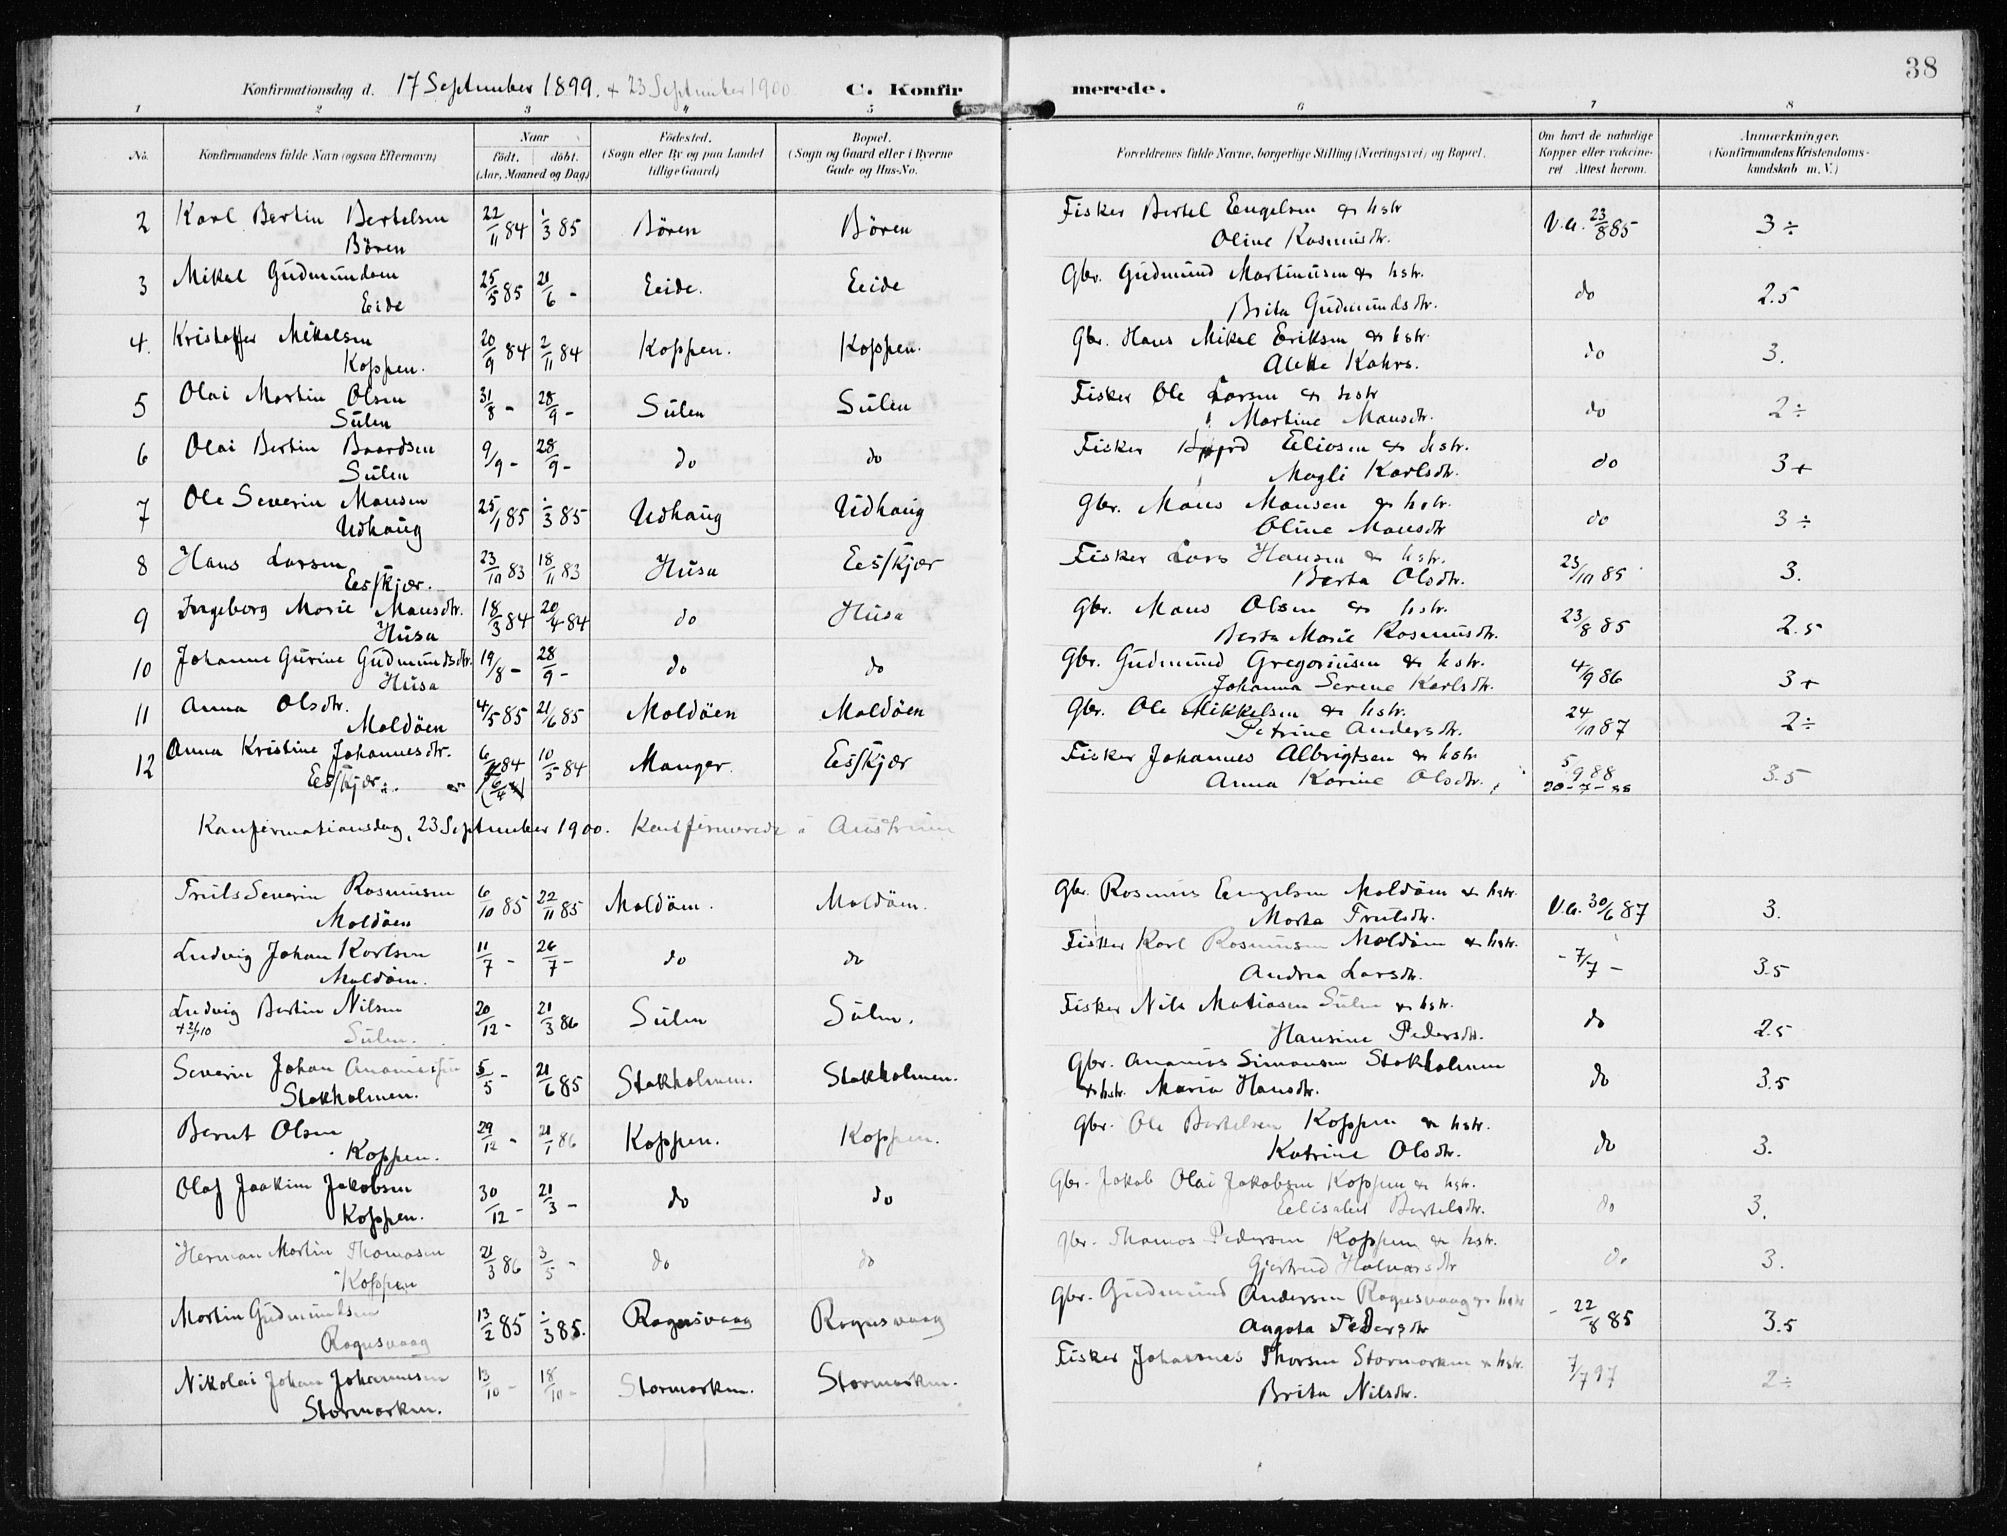 38
Konfirmationsdag d. 17 September 1899. + 23 September 1900 C. Konfirmerede.
1 2 3 4 5 6 7 8
No. Konfirmandens fulde Navn (ogsaa Efternavn) Naar født. døbt. (Aar, Maaned og Dag) Födested. (Sogn eller By og paa Landet tillige Gaard) Bopæl. (Sogn og Gaard eller i Byerne Gade og Hus-No. Forældrenes fulde Navne, borgerlige Stilling (Næringsvei) og Bopæl. Om havt de naturlige Kopper eller vaccineret Attest herom. Anmærkninger. (Konfirmandens Kristendomskundskab m. V.)
2 Karl Bertin Bertelsen 22/11 84 1/3 85 Bören Bören Fisker Bertel Engelsen & hstr V.a. 23/8 85 3 ÷
Bören Oline Rasmusdtr.
3 Mikal Gudmundsen 25/5 85 21/6 - Eeide. Eeide Gbr. Gudmund Martinusen & hstr. do 2.5
Eide Brita Gudmundsdtr.
4. Kristoffer Mikalsen 20/9 84 2/11 84 Koppen. Koppen. Gbr. Hans Mikal Eriksen & hstr. do 3.
Koppen. Alette Kahrs.
5 Olai Martin Olsen 31/8 - 28/9 - Sülen Sülen Fisker Ole Larsen & hstr do 2 ÷
Sülen Martine Mansdtr.
6 Olai Bertin Baardsen 9/9 - 28/9 - do do Fisker Eliasen & hstr. do 3 +
Sülen Magli Karlsdtr.
7 Ole Severin Mansen 25/1 85 1/3 85 Udhaug Udhaug Gbr. Mans Mansen & hstr. do 3 ÷
Udhaug Oline Mansdtr
8 Hans Larsen 23/10 83 18/11 83 Husa Eeskjær Fisker Lars Hansen & hstr. 23/10 85 3.
Eeskjær. Berta Olsdtr.
9 Ingeborg Marie Mansdtr. 18/3 84 20/4 84 do Husa Gbr. Mans Olsen & hstr. 23/8 85 2.5
Husa Berta Marie Rasmusdtr.
10 Johanne Gurine Gudmundsdtr. 19/8 - 28/9 - do do Gbr. Gudmund Gregoriusen & hstr. 4/9 86 3 +
Husa Johanna Serene Karlsdtr.
11 Anna Olsdtr. 4/5 85 21/6 85 Moldöen Moldöen Gbr. Ole Mikkelsen & hstr. 24/10 87 2 ÷
Moldöen Petrine Andersdtr.
12 Anna Kristine Johannesdtr. 6/4 84 10/5 84 Manger. Eeskjær Fisker Johannes Albrigtsen & hstr 5 9 88 3.5
Eeskjær. (6/4) Anna Karine Olsdtr. 20-7-88
Konfirmationsdag, 23 September 1900. Konfirmerede i Austrheim
Truls Severin Rasmusen 6/10 85 22/11 85 Moldöen. Moldöen. Gbr. Rasmus Engelsen Moldöen & hstr. V.a. 30/6 87 3.
Moldöen Marta Trulsdtr.
Ludvig Johan Karlsen 11/7 - 26/7 - do do Fisker Karl Rasmusen Moldöen & hstr. - 7/7 - 3.5
Moldöen. Andrea Larsdtr.
Ludvig Bertin Nilsen 20/12 - 21/3 86 Sülen Sülen. Fisker Nils Matiasen Sulen & hstr. do 2.5
+ 2/10 Sülen. Hansine Pedersdtr.
Severin Johan Ananiassen 5/5 - 21/6 85 Stokholmen. Stokholmen. Gbr. Ananias Simonsen Stokholmen do 3.5
Stokholmen. & hstr. Maria Hansdtr.
Bernt Olsen 29/12 - 21/1 86 Koppen. Koppen. Gbr. Ole Bertelsen Koppen & hstr. do 3.
Koppen. Katrine Olsdtr.
Olaf Joakim Jakobsen 30/12 - 21/3 - do do Gbr. Jakob Olai Jakobsen Koppen & hstr. do 3.
Koppen. Eelisabet Bertelsdtr.
Herman Martin Thomasen 21/3 86 3/5 - do do Gbr. Thomas Pedersen Koppen & hstr. do 3.
Koppen Gjertrud Halvarsdtr
Martin Gudmundsen 13/2 85 1/3 85. Rognsvaag Rognsvaag Gbr. Gudmund Andersen Rognsvaag & hstr - 22/8 85 3.5
Rognsvaag Angota Pedersdtr
Nikolai Johan Johannesen 13/10 - 18/10 - Stormarken. Stormarken. Fisker Johannes Thorsen Stormarken & hstr. 7/7 97 2 ÷
Stormarken. Brita Nilsdtr.